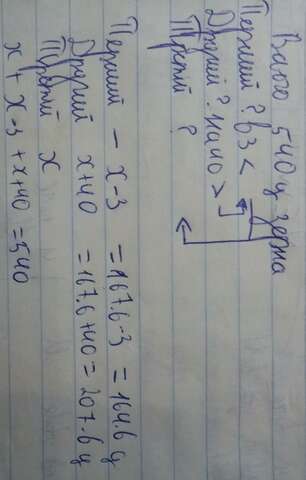 Всього 540 ц зерна
Перший ? в 3 <
Другий ? на 40 >
Третій ?
Перший – x-3 = 167.6-3 = 164.6 ц
Другий x+40 = 167.6+40 = 207.6 ц
Третій x
x + x-3 + x+40 = 540